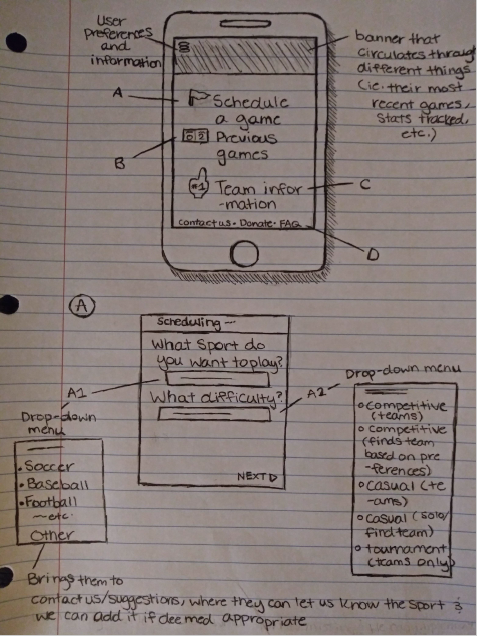 User
preferences
and
information
banner that
circulates through
different things
(ie. their most
recent games,
stats tracked,
etc.)
A
Schedule
a game
B
02
Previous
games
#1
Team infor
-mation
C
Contact us • Donate • FAQ
D
A
Scheduling --
What sport do
you want to play?
A1
What difficulty?
A2
NEXT
Drop-down
menu
• Soccer
• Baseball
• Football
~etc.
Other
Drop-down menu
○ competitive
(teams)
○ competitive
(finds team
based on pre
-ferences)
○ casual (te
-ams)
○ casual (solo/
find team)
○ tournament
(teams only)
Brings them to
contact us/suggestions, where they can let us know the sport &
we can add it if deemed appropriate